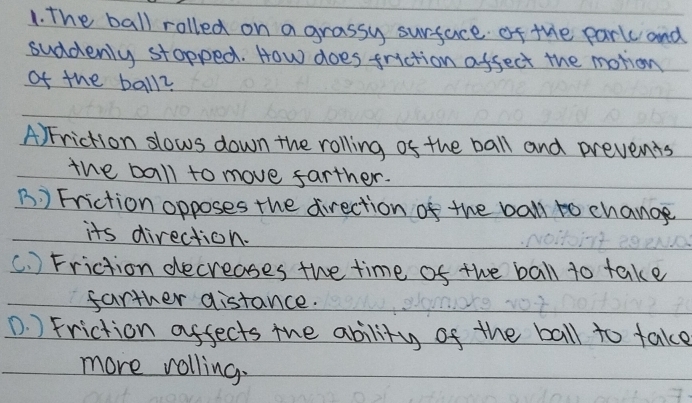 1. The ball rolled on a grassy surface of the park and
suddenly stopped. How does friction affect the motion
of the ball?
A) Friction slows down the rolling of the ball and prevents
the ball to move farther.
B.) Friction opposes the direction of the ball to change
its direction.
C.) Friction decreases the time of the ball to take
farther distance.
D.) Friction affects the ability of the ball to take
more rolling.